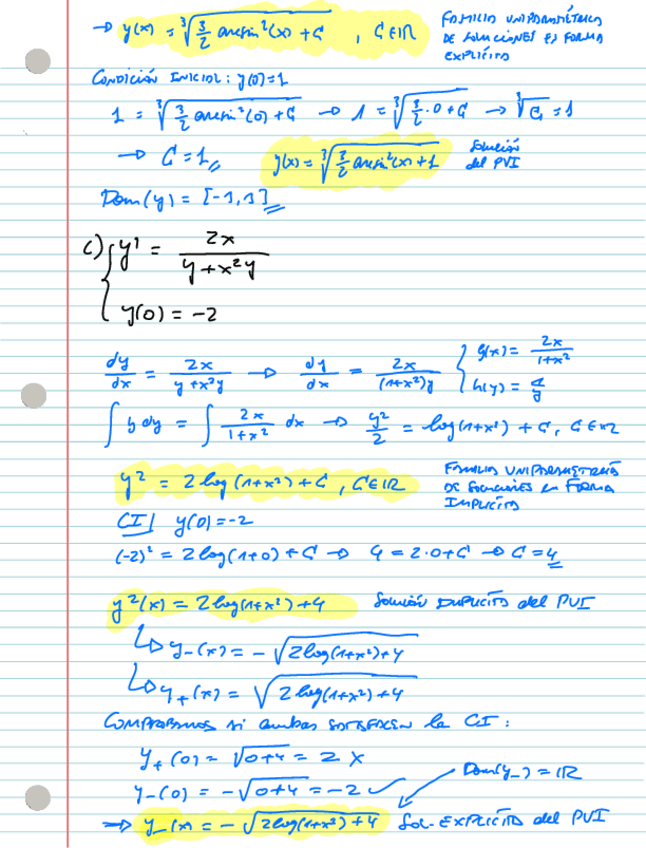 → y(x) = ∛(3/2 arcsin²(x) + C) , C∈ℝ
FAMILIA UNIPARAMÉTRICA
DE SOLUCIONES EN FORMA
EXPLÍCITA
CONDICIÓN INICIAL: y(0)=1
1 = ∛(3/2 arcsin²(0) + C) → 1 = ∛(3/2·0+C) → ∛C = 1
→ C=1 y(x) = ∛(3/2 arcsin²(x) + 1) Solución del PVI
Dom(y) = [-1,1]
c) { y' = 2x/(y+x²y)
y(0) = -2
dy/dx = 2x/(y+x²y) → dy/dx = 2x/((1+x²)y) { g(x) = 2x/(1+x²)
h(y) = 1/y
∫ y dy = ∫ 2x/(1+x²) dx → y²/2 = log(1+x²) + C, C∈ℝ
y² = 2 log(1+x²) + C, C∈ℝ
FAMILIA UNIPARAMÉTRICA
DE SOLUCIONES EN FORMA
IMPLÍCITA
CI/ y(0)=-2
(-2)² = 2 log(1+0) + C → 4 = 2·0+C → C=4
y²(x) = 2 log(1+x²)+4 Solución IMPLÍCITA del PVI
↳ y₋(x) = -√(2log(1+x²)+4)
↳ y₊(x) = √(2log(1+x²)+4)
COMPROBAMOS si ambas SATISFACEN la CI:
y₊(0) = √(0+4) = 2 X
y₋(0) = -√(0+4) = -2 ✓ Dom(y₋) = ℝ
⇒ y₋(x) = -√(2log(1+x²)+4) Sol. EXPLÍCITA del PVI